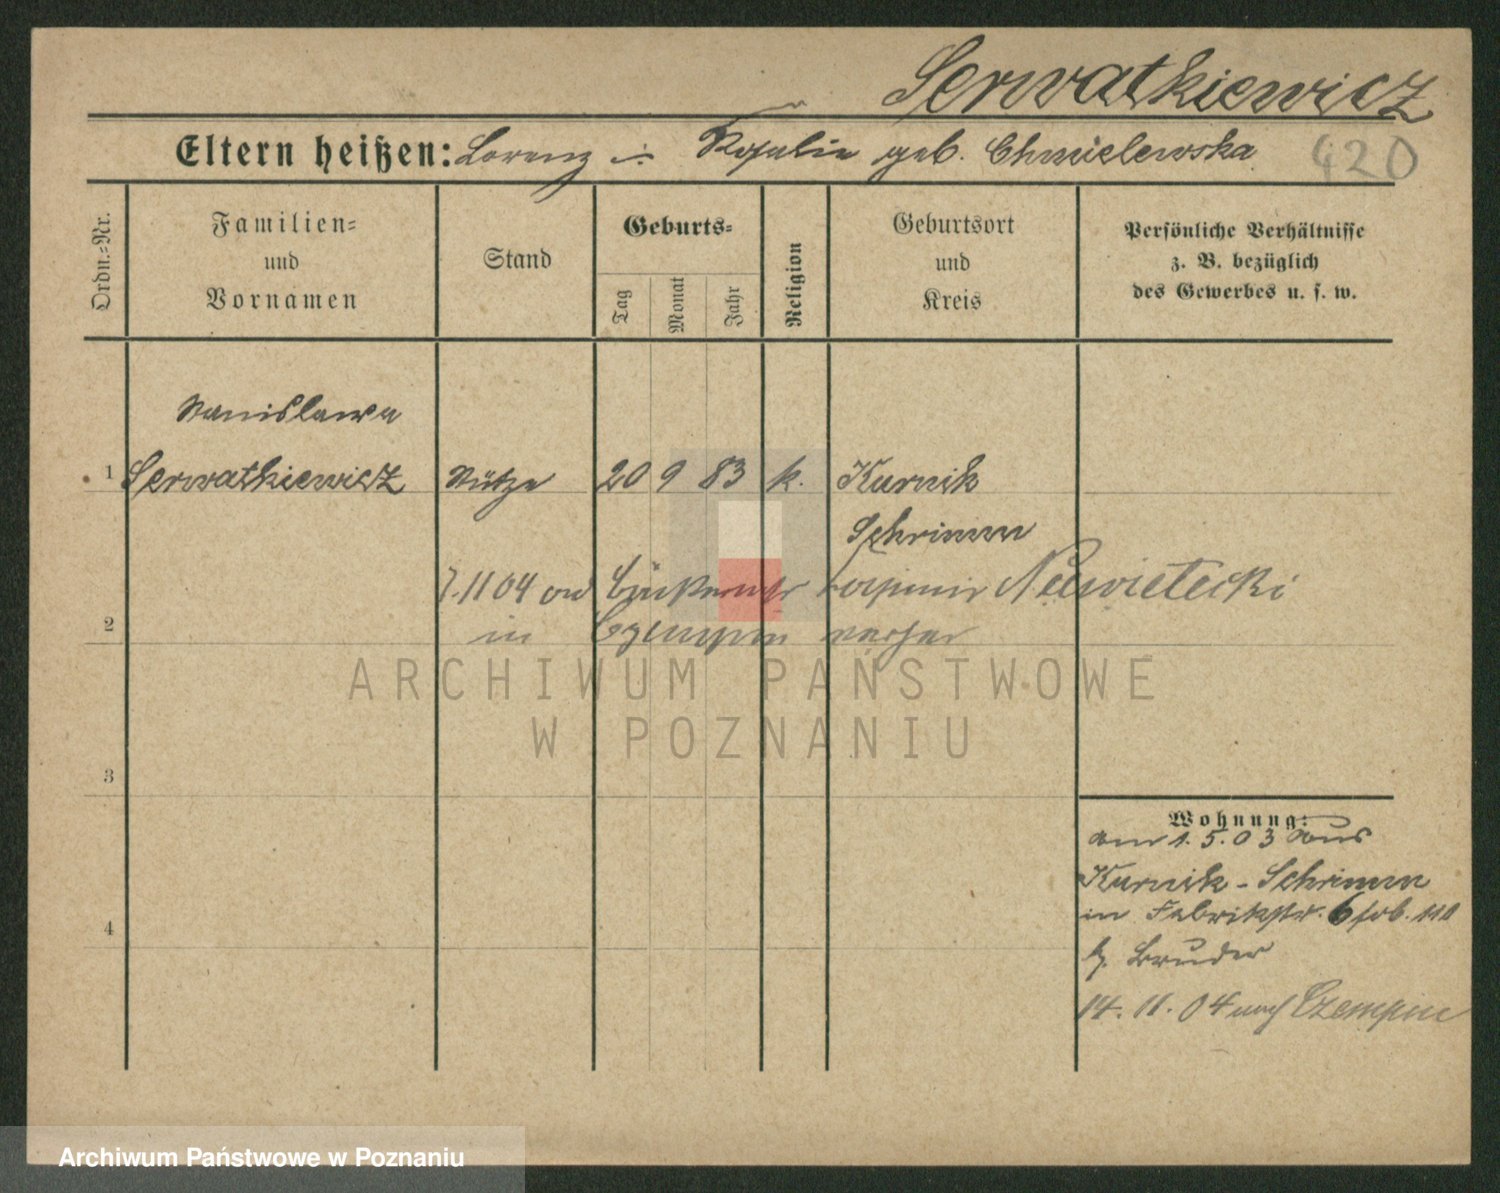 Serwatkiewicz
Eltern heißen: Lorenz u. Rosalie geb. Chmielewska
420
Ordn.-Nr.
Familien-
und
Vornamen
Stand
Geburts-
Tag
Monat
Jahr
Religion
Geburtsort
und
Kreis
Persönliche Verhältnisse
z. B. bezüglich
des Gewerbes u. s. w.
Stanislawa
1 Serwatkiewicz Stütze 20 9 83 k. Kurnik
Schrimm
7.11 04 Kasimir
2 in Czempin verhei
ARCHIWUM PAŃSTWOWE
W POZNANIU
3
Wohnung:
am 1.5.03 aus
Kurnik - Schrimm
4 in Fabrikstr. 6
b. Bruder
14. 11. 04 nach Czempin
Archiwum Państwowe w Poznaniu